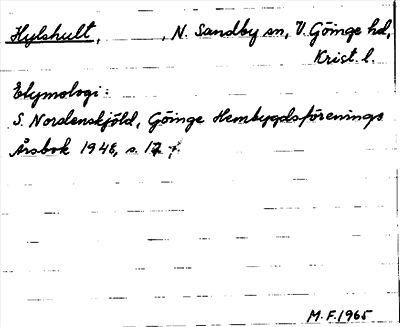 Hylshult, , N. Sandby sn, V. Göinge hd,
Krist. l.
Etymologi:
S. Nordenskjöld, Göinge Hembygdsförenings
Årsbok 1948, s. 17
M.F. 1965